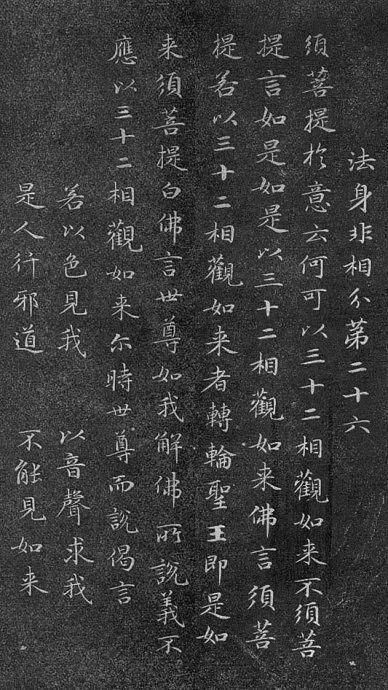 法身非相分第二十六
須菩提於意云何可以三十二相觀如来不須菩
提言如是如是以三十二相觀如来佛言須菩
提若以三十二相觀如来者轉輪聖王即是如
来須菩提白佛言世尊如我解佛所說義不
應以三十二相觀如来尒時世尊而說偈言
若以色見我 以音聲求我
是人行邪道 不能見如来